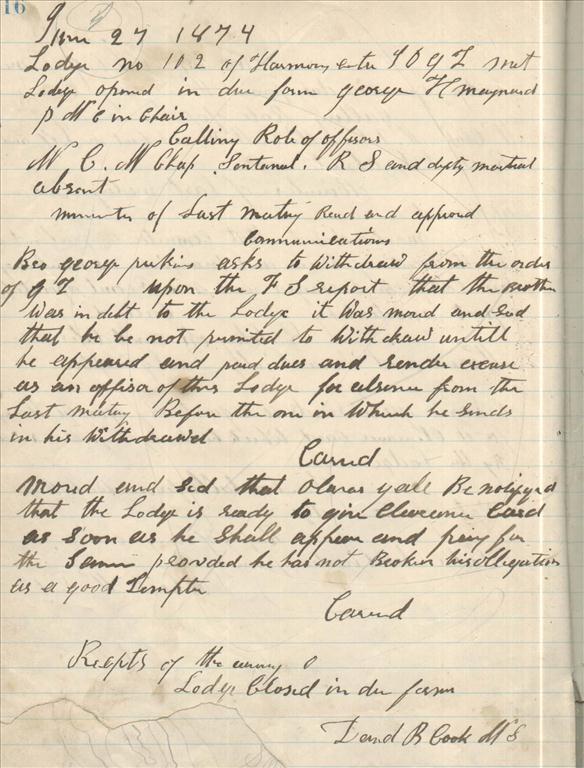 16
June 27 1874
Lodge no 102 of Harmony entr I O G T met
Lodge opened in due form george H maynard
P W C in Chair
Calling Role of offisors
W C. W Chap. Sentanal. R S and dpty martial
absent
minutes of Last mating Read and approvd
Communications
Bro george perkins asks to Withdraw from the order
of G T upon the F S report that the Brother
Was in debt to the Lodge it Was movd and Secd
that he be not permited to Withdraw untill
he appeared and paid dues and render excuse
as an offisor of this Lodge for absence from the
Last mating Before the one in Which he Sends
in his Withdrawel
Carred
Moved and Secd that yall Be notifyed
that the Lodge is ready to give Clearence Card
as soon as he Shall appear and pay for
the Same provded he has not Broken his obligation
as a good Templer
Carred
Recepts of the evning 0
Lodge Closed in due form
David B Cook W S